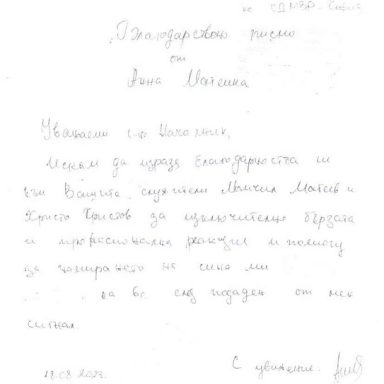 СДМВР - София
Благодарствено писмо
от
Анна Матеина
Уважаеми г-н Началник,
Искам да изразя благодарността си
към Вашите служители Момчил Матев и
Христо Христов за изключително бързата
и професионална реакция и помощ
за намирането на сина ми
на 8с след подаден от мен
сигнал.
18.08.2023. С уважение: